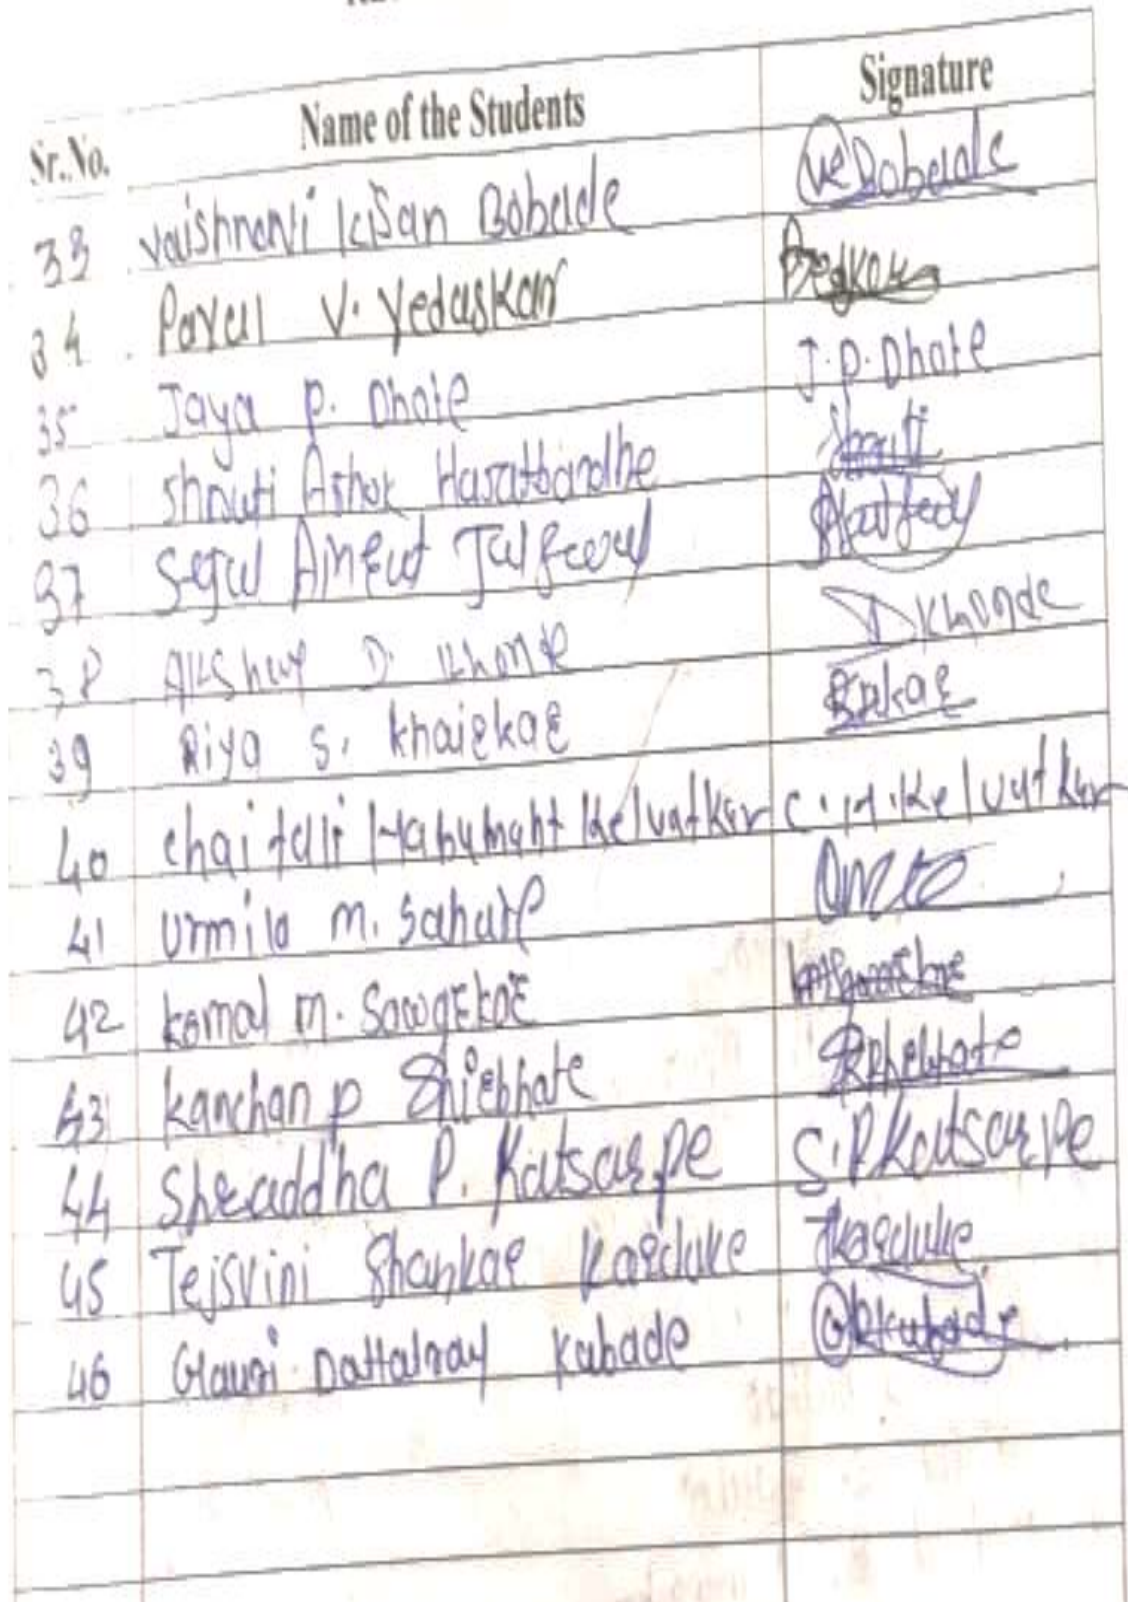 Name of the Students Signature
Sr. No.
33 Vaishnavi Kisan Bobade Bobade
34 Payal V. Yedaskar
35 Jaya P. Dhote J.P. Dhote
36 Shruti Ashok Shruti
37 Sejal
38 Akshay D. Khonde D Khonde
39 Riya S. Khairkar
40 Chaitali Hanumant Kelvatkar C.H. Kelvatkar
41 Urmila M. Saharе
42 Komal M.
43 Kanchan P Shirbhate
44 Shraddha P. Katsarpe S.P Katsarpe
45 Tejsvini Shankar Karduke Tkarduke
46 Gauri Dattatray Kubade